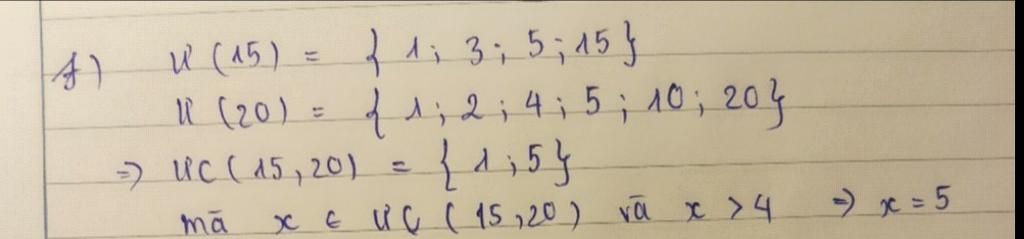 f) Ư(15) = { 1; 3; 5; 15}
Ư(20) = { 1; 2; 4; 5; 10; 20}
=> ƯC(15,20) = { 1; 5}
mà x ∈ ƯC (15,20) và x > 4 => x = 5